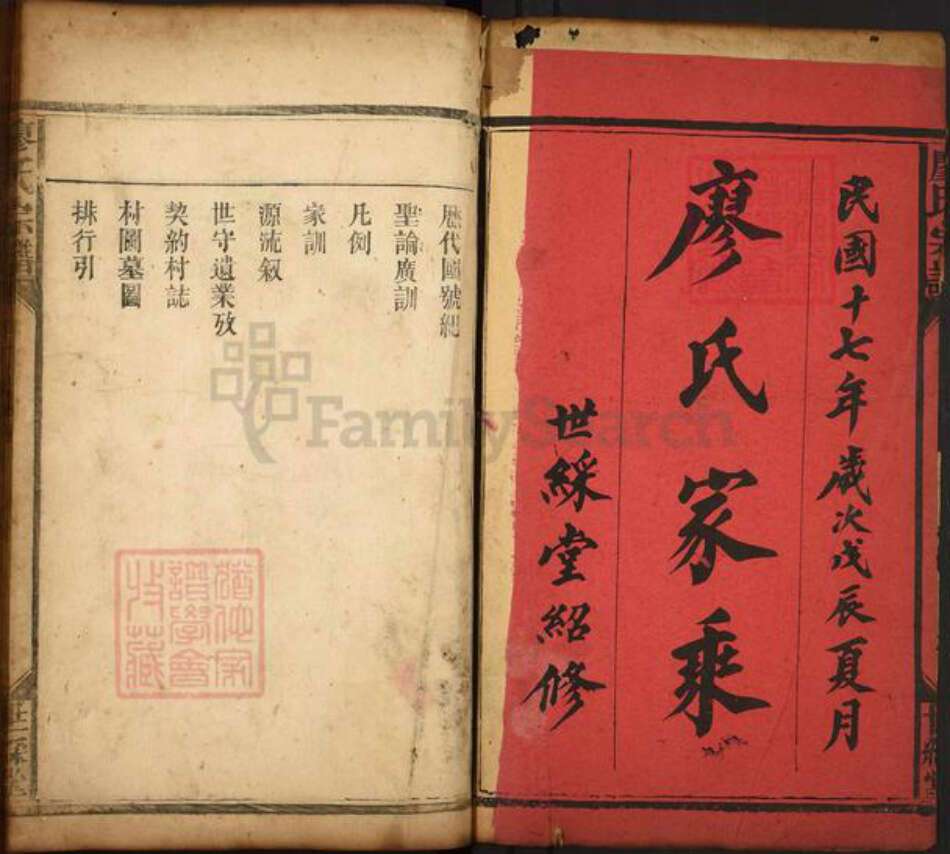 民國十七年歲次戊辰夏月
廖氏家乘
世綵堂紹修
歷代國號紀
聖諭廣訓
凡例
家訓
源流叙
世守遺業攷
契約村誌
村圖墓圖
排行引
廖氏宗譜
世綵堂
FamilySearch